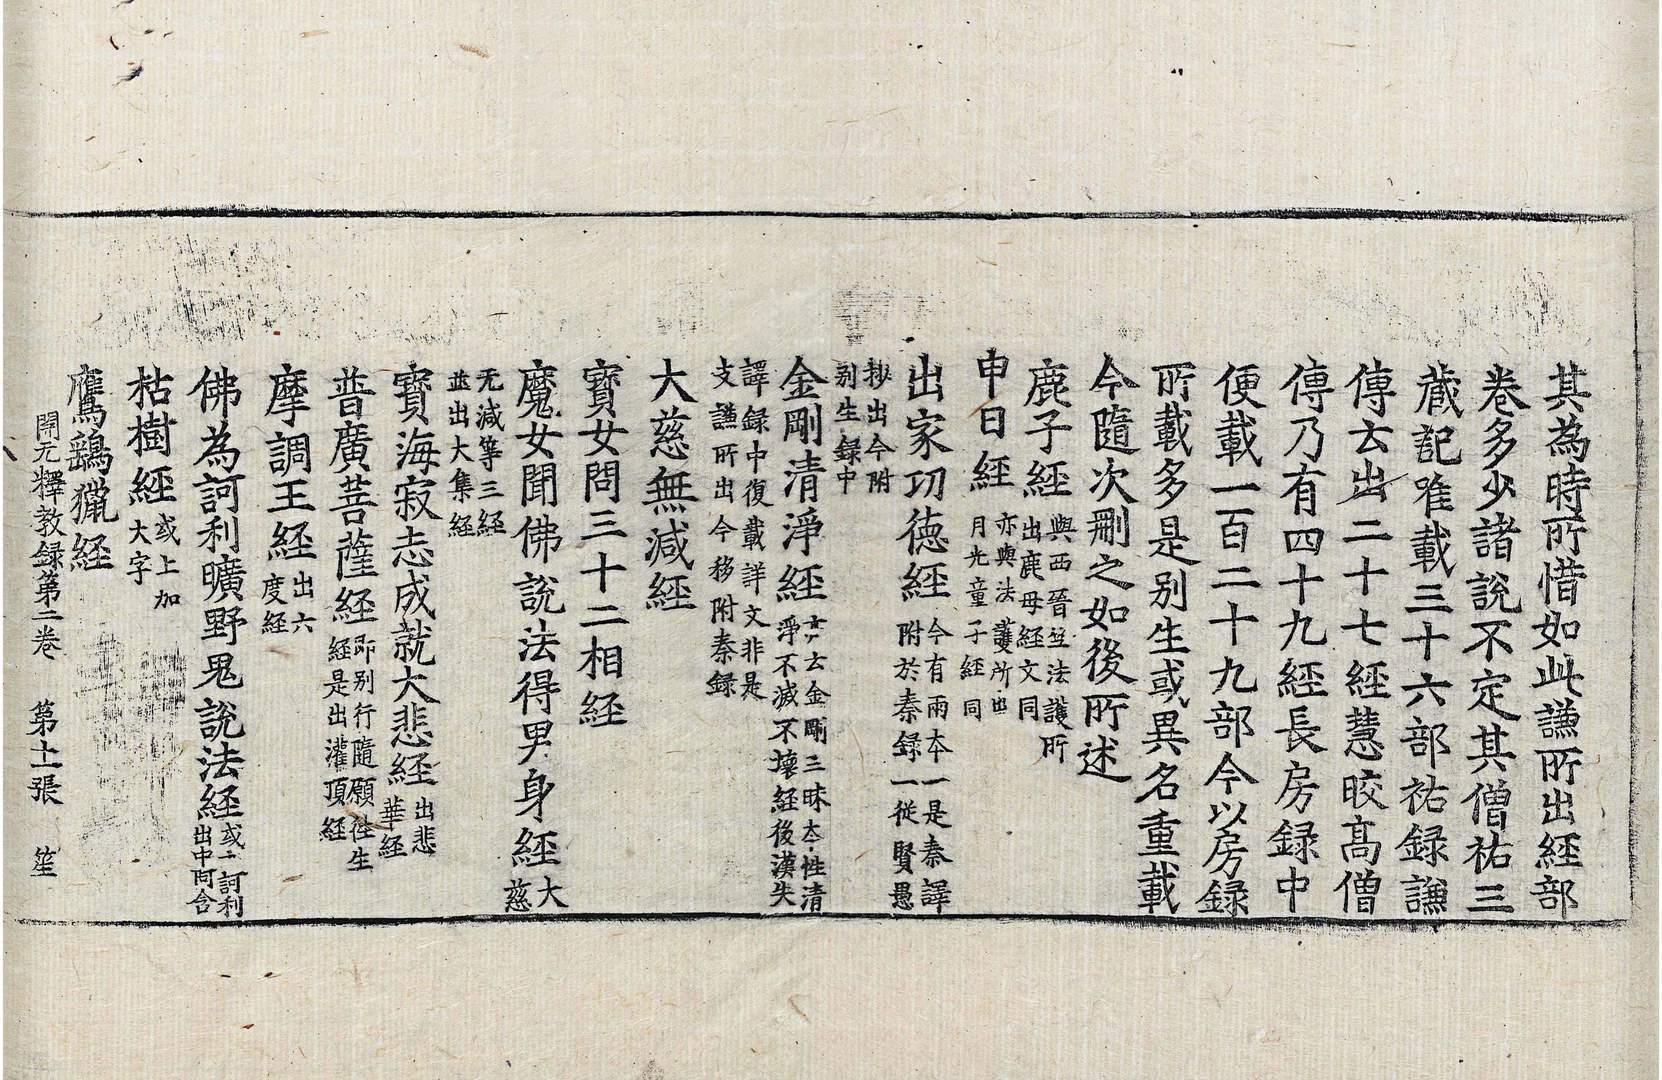 其為時所惜如此謙所出經部
卷多少諸說不定其僧祐三
藏記唯載三十六部祐録謙
傳去出二十七經慧皎高僧
傳乃有四十九經長房録中
便載一百二十九部今以房録
所載多是别生或異名重載
今隨次刪之如後所述
鹿子經 與西晉竺法護所
出鹿母經文同
申日經 亦與法護所出
月光童子經同
出家功德經 今有兩本一是秦譯
附於秦録一從賢愚
抄出今附
别生録中
金剛清淨經 亦云金剛三昧本性清
淨不滅不壞經後漢失
譯録中復載詳文非是
支謙所出今移附秦録
大慈無減經
寳女問三十二相經
魔女聞佛說法得男身經 大
慈
无減等三經
並出大集經
寳海寂志成就大悲經 出悲
華經
普廣菩薩經 即别行隨願往生
經是出灌頂經
摩調王經 出六
度經
佛為訶利曠野鬼說法經 或二訶利
出中阿含
枯樹經 或上加
大字
鷹鷂獵經
開元釋教録第二卷 第十一張 笙